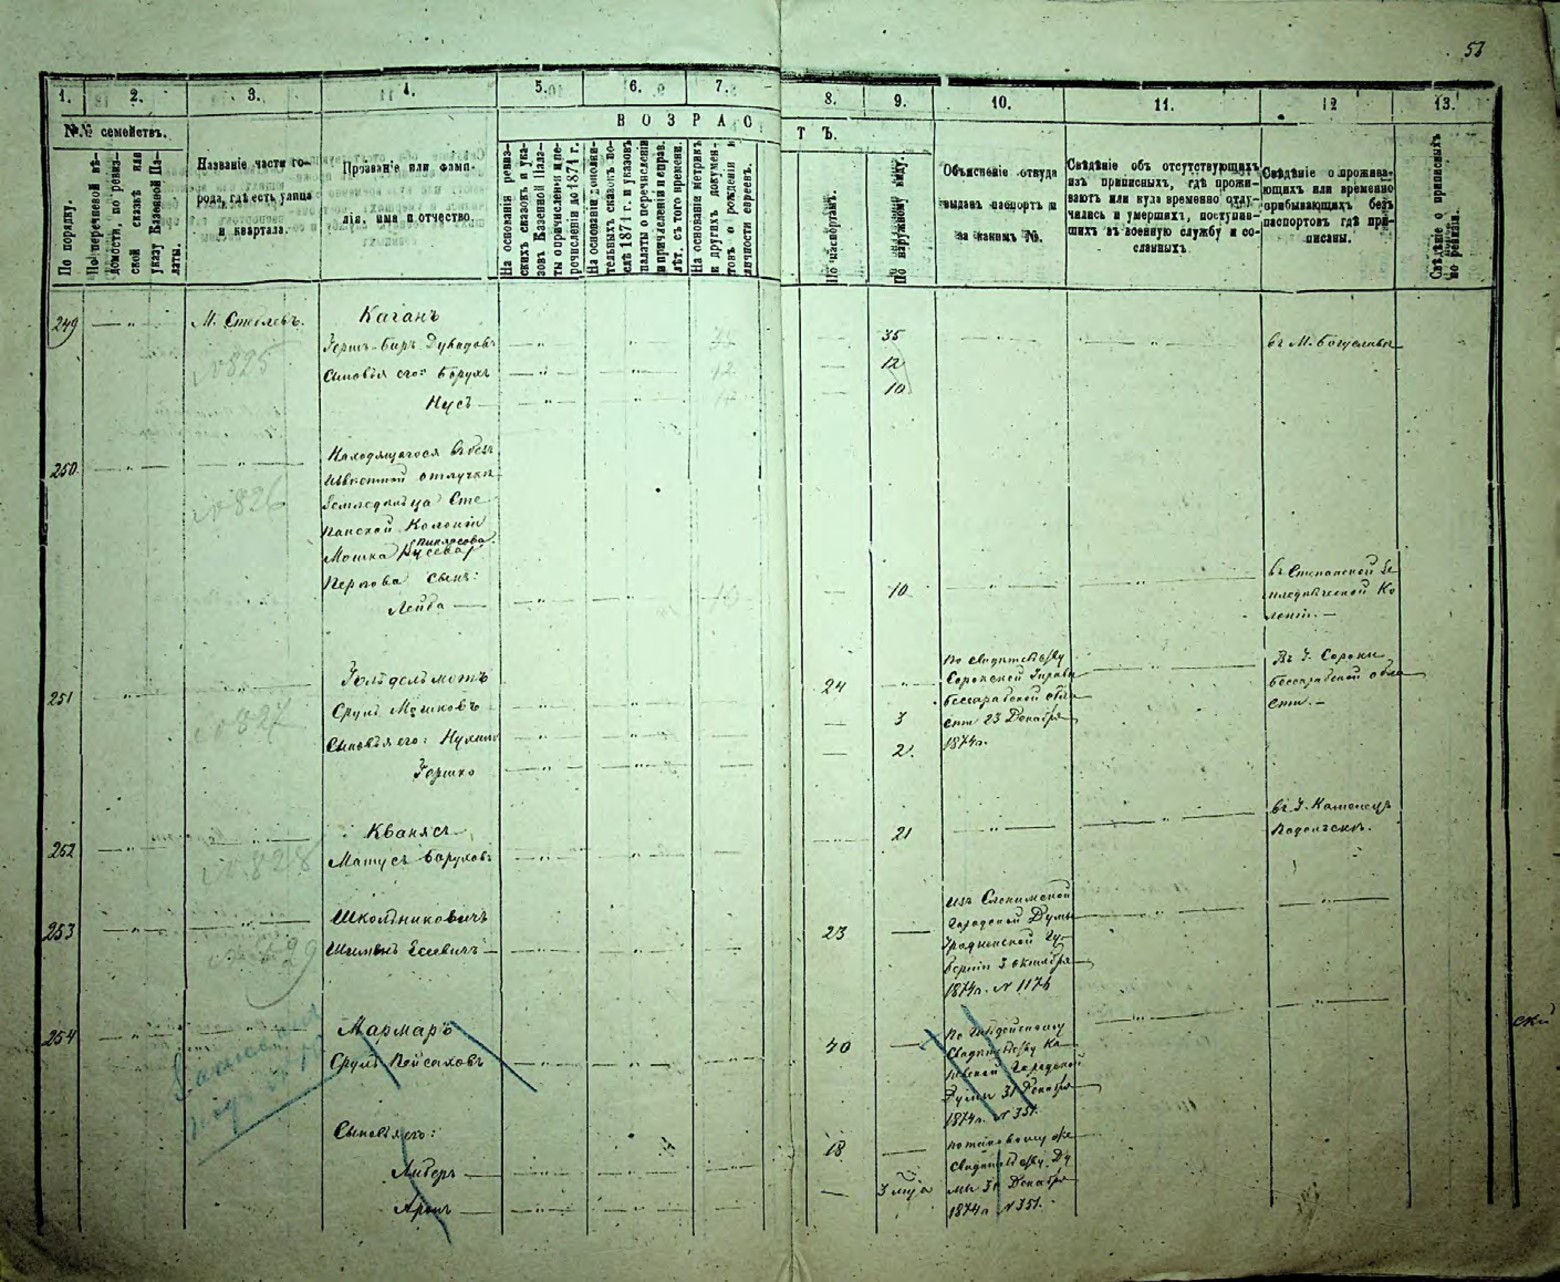 53
1. 2. 3. 4. 5. 6. 7. 8. 9. 10. 11. 12 13.
№№ семействъ.
В О З Р А С Т Ъ.
По порядку.
По перечневой вѣдомости, по ревизской сказкѣ или указу Казенной Палаты.
Названіе части города, гдѣ есть улица и квартала.
Прозваніе или фамилія, имя и отчество.
На основаніи ревизскихъ сказокъ и указовъ Казенной Палаты о причисленіи и перечисленіи до 1871 г.
На основаніи дополнительныхъ сказокъ послѣ 1871 г. и указовъ палаты о перечисленіи и причисленіи и справ. лѣт. съ того времени.
На основаніи метрикъ и другихъ документовъ о рожденіи и личности евреевъ.
По паспортамъ.
По наружному виду.
Объясненіе откуда выданъ паспортъ и за какимъ №.
Свѣдѣніе объ отсутствующихъ изъ приписныхъ, гдѣ проживаютъ или куда временно отлучились и умершихъ, поступившихъ въ военную службу и сосланныхъ
Свѣдѣніе о проживающихъ или временно прибывающихъ безъ паспортовъ гдѣ приписаны.
Свѣдѣніе о приписныхъ по ревизіи.
249 М. Стеблевъ. Каганъ
№825
Герш-Беръ Дувидовъ 35 въ М. Богуславѣ
Сыновья его: Борухъ 12 12
Нусъ 10
250
№826
Находящагося въ безъ
извѣстной отлучкѣ
Земледѣльца Сте
панской Колоніи
Мошка
Пергова сынъ:
Лейба 10
въ Степанской Зе
мледѣльческой Ко
лоніи.
251
№827
Срулъ Мошковъ 24
Сыновья его: Нухимъ 3
Гершко 2.
По свидѣтельству
Сорокской Управы
Бессарабской обла
сти 23 Декабря
1874г.
Въ Г. Сороки
Бессарабской обла
сти.
252 Кванясъ 21
№828
Матусъ Боруховъ
въ Г. Каменецъ
Подольскъ.
253 Школьниковичъ 23
Шимонъ Есевичъ
Изъ Слонимской
Городской Думы
Гродненской Гу-
берніи 3 октября
1874г. № 1176
254 Мармаръ 40
Срулъ Пейсаховъ
Свидѣтельству Ка
невской Городской
Думы 31 Декабря
1874г. № 351.
Сыновья его: 18
Либеръ
Аронъ 3 мца
по таковому же
свидѣтельству Ду
мы 31 Декабря
1874г. № 351.
ский